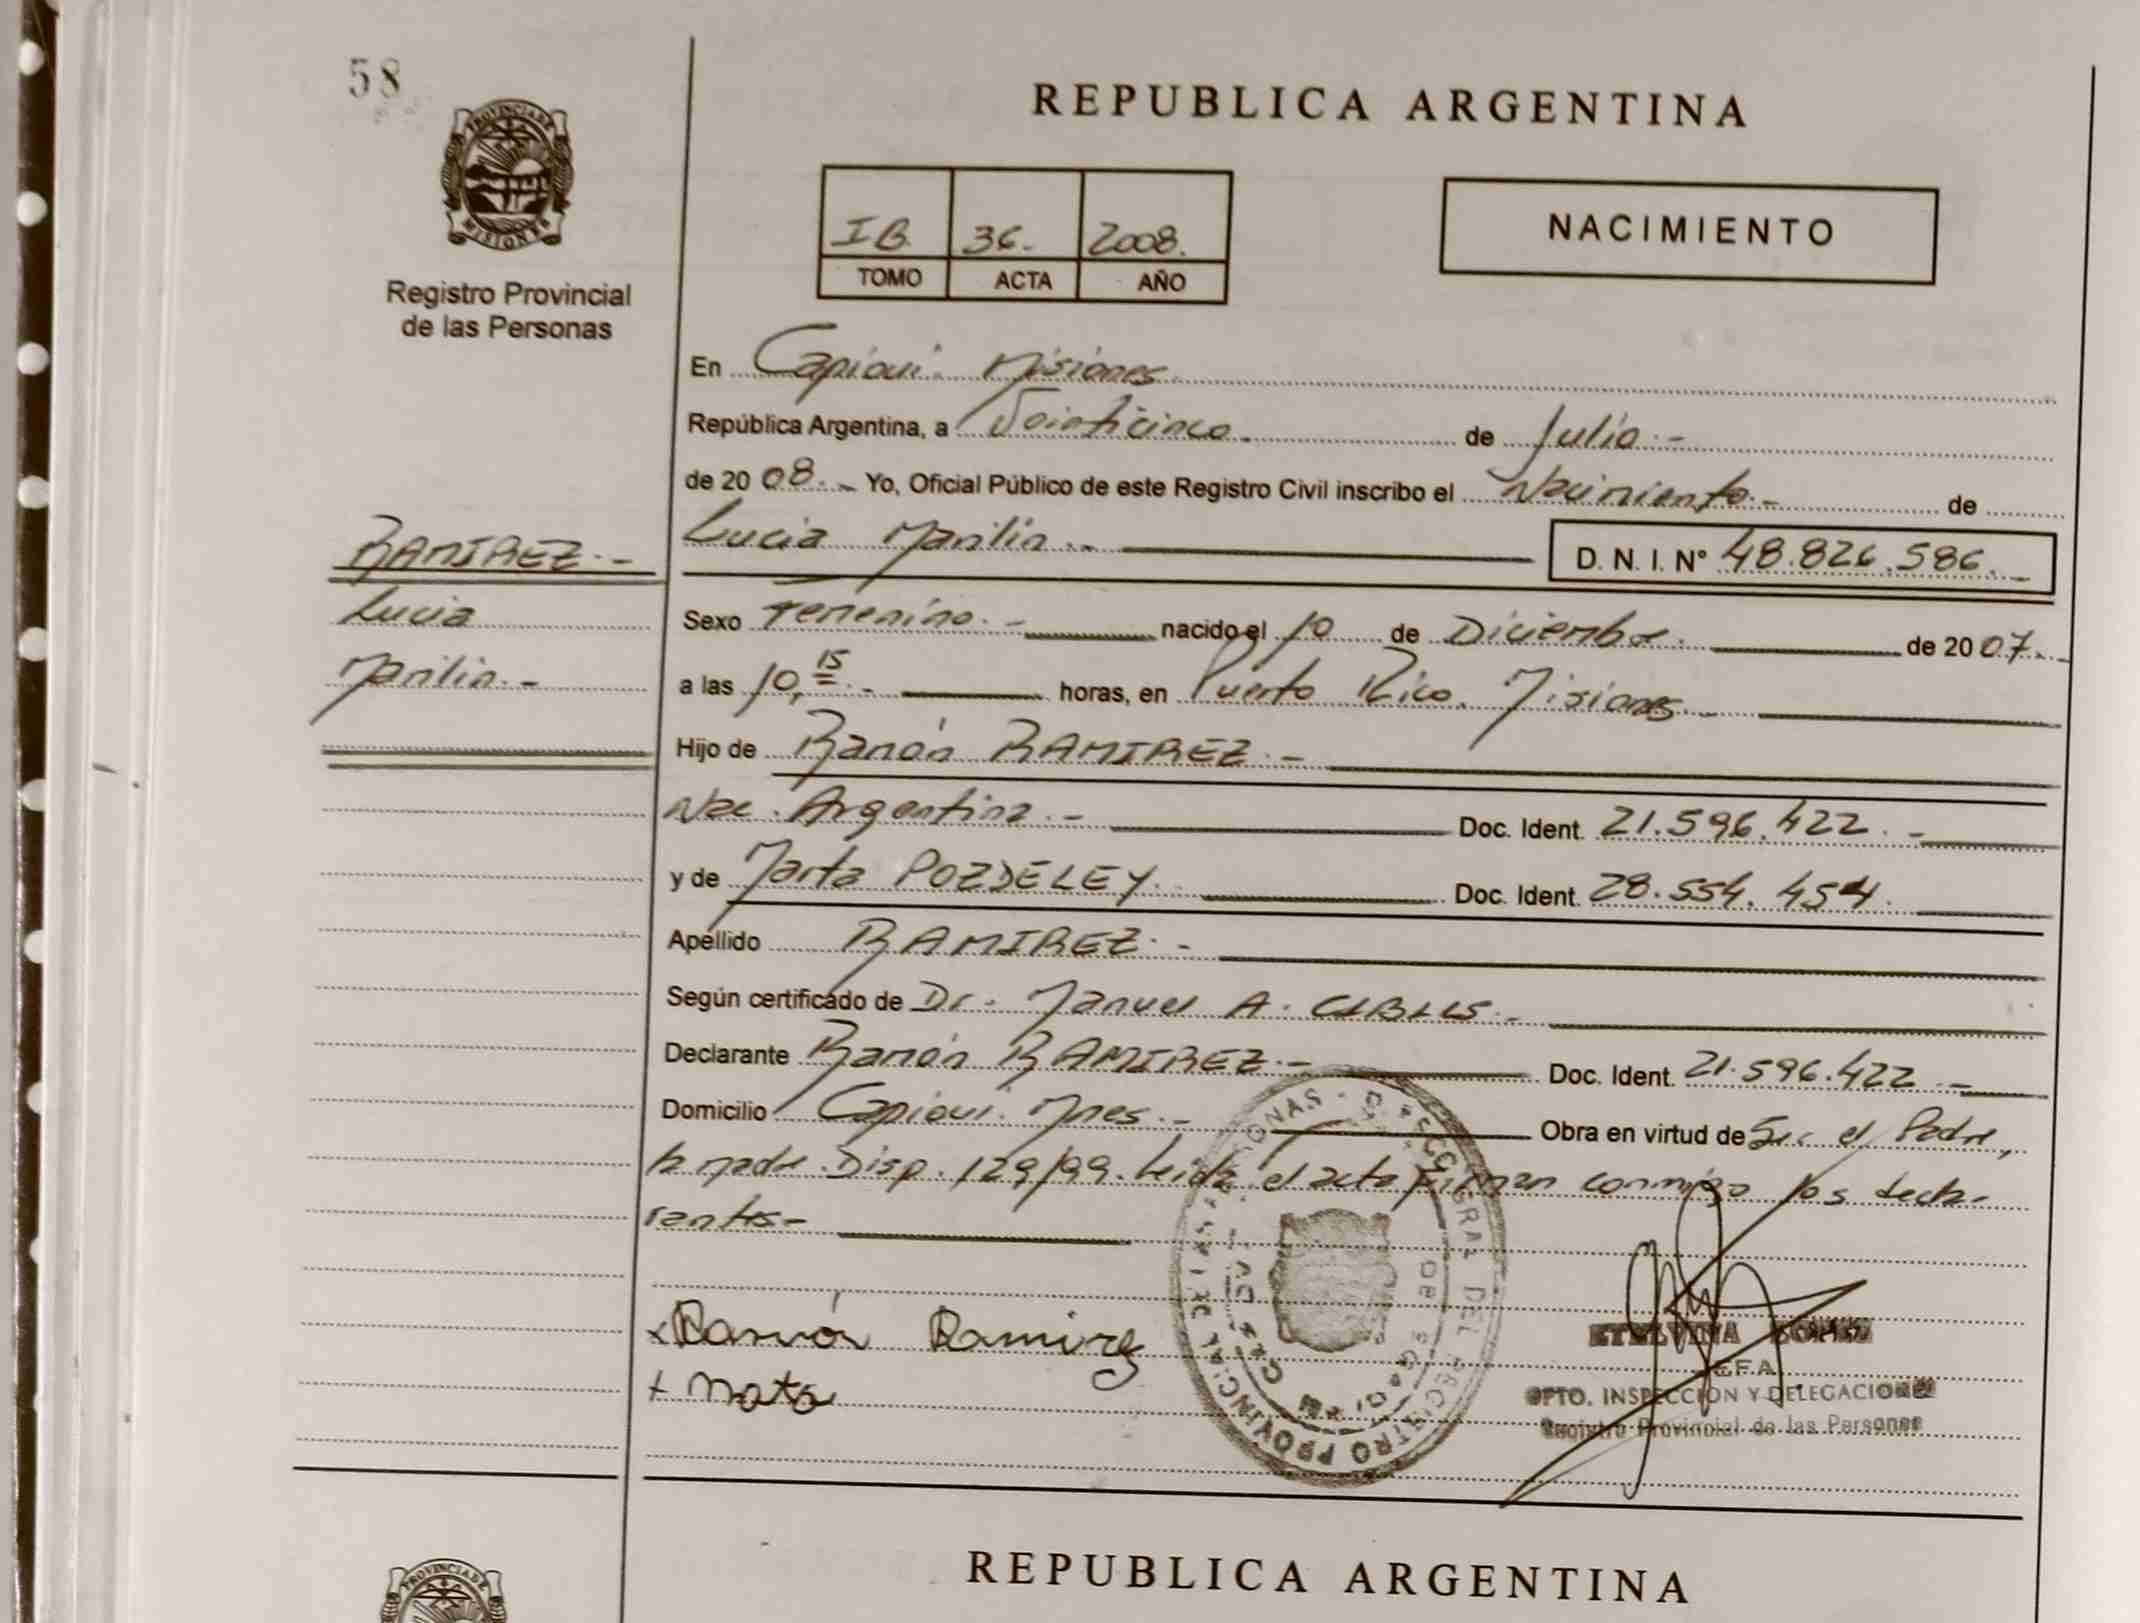 58
PROVINCIA DE
MISIONES
Registro Provincial
de las Personas
REPUBLICA ARGENTINA
IB 36.- 2008.
TOMO ACTA AÑO
NACIMIENTO
En Capioui. Misiones.
República Argentina, a Veinticinco.- de Julio.-
de 20 08.- Yo, Oficial Público de este Registro Civil inscribo el Nacimiento.- de
RAMIREZ.-
Lucia
Marilin.-
Lucia Marilin.- D. N. I. N° 48.826.586.-
Sexo Femenino.- nacido el 10 de Diciembre. de 20 07.-
a las 10,15.- horas, en Puerto Rico. Misiones.-
Hijo de Ramón RAMIREZ.-
Nac. Argentina.- Doc. Ident. 21.596.422.-
y de Marta POZDELEY. Doc. Ident. 28.554.454.
Apellido RAMIREZ.-
Según certificado de Dr. Manuel A.
Declarante Ramón RAMIREZ.- Doc. Ident. 21.596.422.-
Domicilio Capioui. Mnes.- Obra en virtud de Ser el Padre,
la madre. Disp. 129/99. Leída el acta firman conmigo los decla-
rantes-
x Ramón Ramirez
+
REGISTRO PROVINCIAL DE LAS PERSONAS
E.F.A.
DPTO. INSPECCION Y DELEGACIONES
Registro Provincial de las Personas
REPUBLICA ARGENTINA
PROVINCIA DE